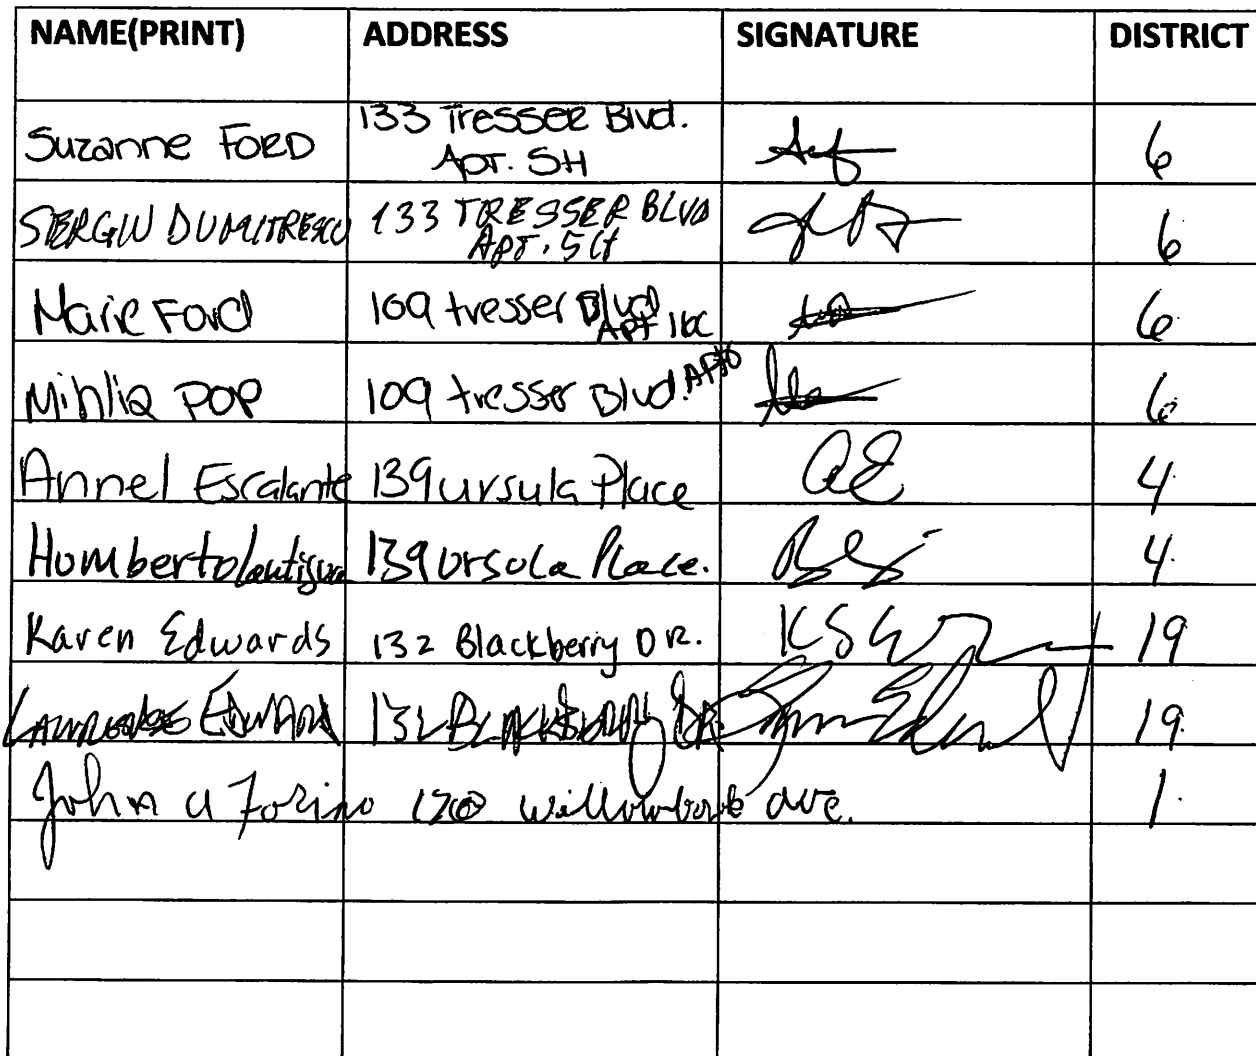 NAME(PRINT) ADDRESS SIGNATURE DISTRICT
Suzanne FORD 133 Tresser Blvd. 6
Apt. 5H
SERGIU DUMITRESCU 133 TRESSER BLVD 6
APT. 5H
Marie Ford 109 tresser Blvd 6
APT 16C
Mihlia POP 109 tresser Blvd. 6
Annel Escalante 139 ursula Place AE 4
Humberto 139 Ursula Place. 4
Karen Edwards 132 Blackberry DR. 19
19
John a Forino Willowbrook ave. 1